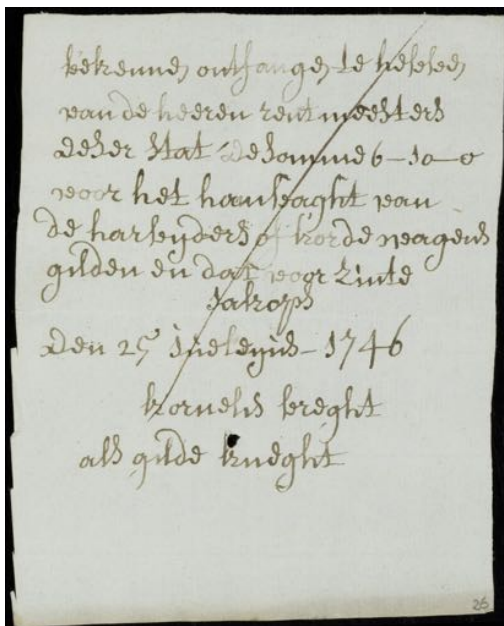 bekennen ontfangen te hebben
van de heeren rentmeesters
deser stat de somme 6-10-0
voor het hanbaght van
de harbyders of korde wagens
gilden en dat voor sinte
Jakops
den 25 Jueleyus - 1746
kornelis breght
als gilde knieght
26